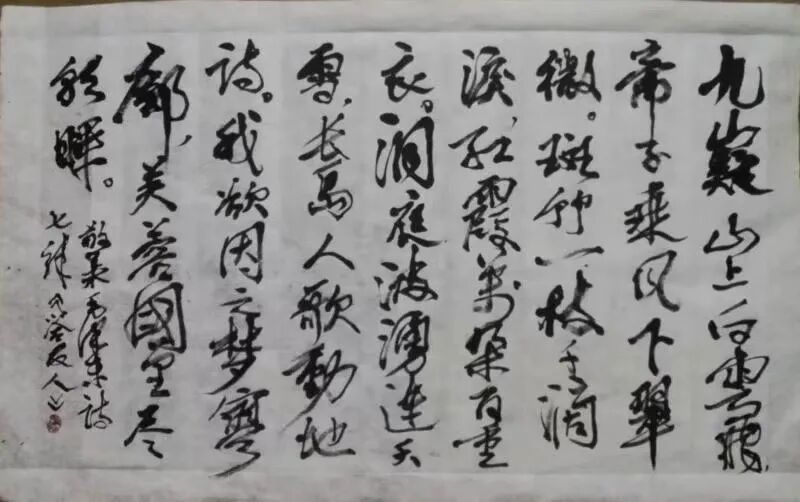 九嶷山上白雲飛,
帝子乘风下翠
微。斑竹一枝千滴
淚,红霞萬朵百重
衣。洞庭波湧連天
雪,长岛人歌動地
诗。我欲因之梦寥
廓,芙蓉國里尽
朝暉。
敬录毛泽东诗
七律答友人